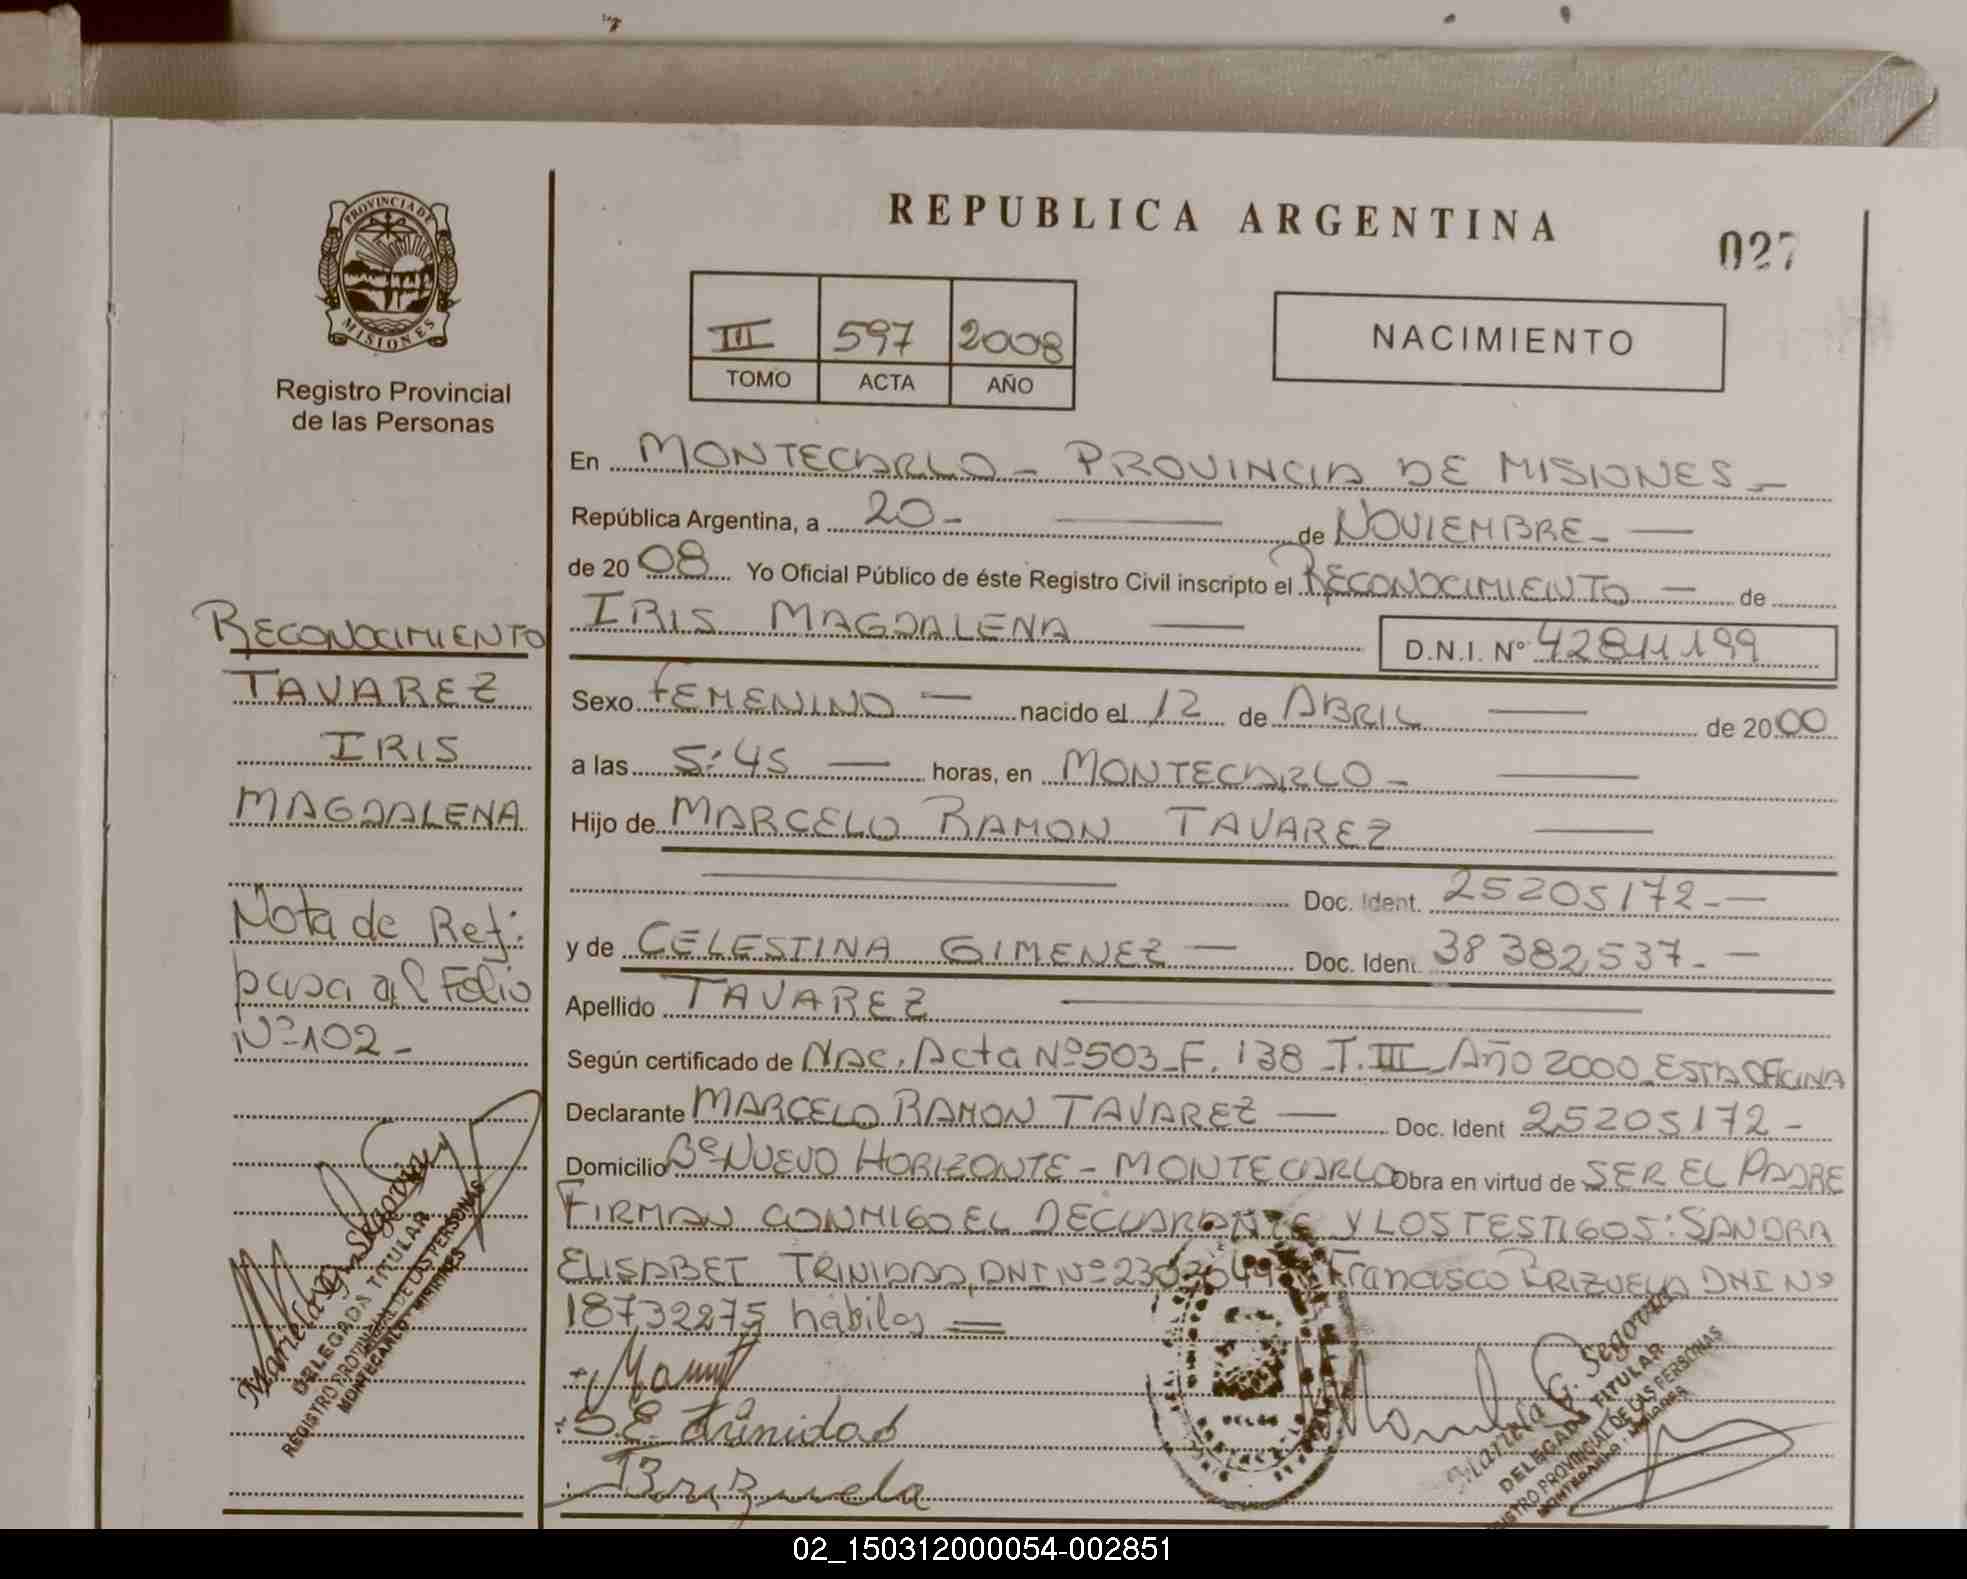 REPUBLICA ARGENTINA
027
PROVINCIA DE
MISIONES
Registro Provincial
de las Personas
III 597 2008
TOMO ACTA AÑO
NACIMIENTO
En MONTECARLO - PROVINCIA DE MISIONES -
República Argentina, a 20 - de NOVIEMBRE -
de 2008 Yo Oficial Público de éste Registro Civil inscripto el RECONOCIMIENTO — de
IRIS MAGDALENA — D.N.I. Nº 42811199
Sexo FEMENINO — nacido el 12 de ABRIL — de 2000
a las 5:45 — horas, en MONTECARLO -
Hijo de MARCELO RAMON TAVAREZ
Doc. Ident. 25205172 -
y de CELESTINA GIMENEZ — Doc. Ident. 38382537 -
Apellido TAVAREZ
Según certificado de NAC. Acta Nº 503 - F. 138 - T. III - Año 2000 ESTA OFICINA
Declarante MARCELO RAMON TAVAREZ — Doc. Ident 25205172 -
Domicilio Bº NUEVO HORIZONTE - MONTECARLO Obra en virtud de SER EL PADRE
FIRMAN CONMIGO EL DECLARANTE Y LOS TESTIGOS: SANDRA
ELISABET TRINIDAD, DNI Nº Francisco BRIZUELA DNI Nº
18732275 hábiles =
S.E. Trinidad
Brizuela
RECONOCIMIENTO
TAVAREZ
IRIS
MAGDALENA
Nota de Ref:
pasa al Folio
Nº 102 -
Mariela G. Segovia
DELEGADA TITULAR
REGISTRO PROVINCIAL DE LAS PERSONAS
MONTECARLO - MISIONES
Mariela G. Segovia
DELEGADA TITULAR
REGISTRO PROVINCIAL DE LAS PERSONAS
MONTECARLO - MISIONES
02_150312000054-002851